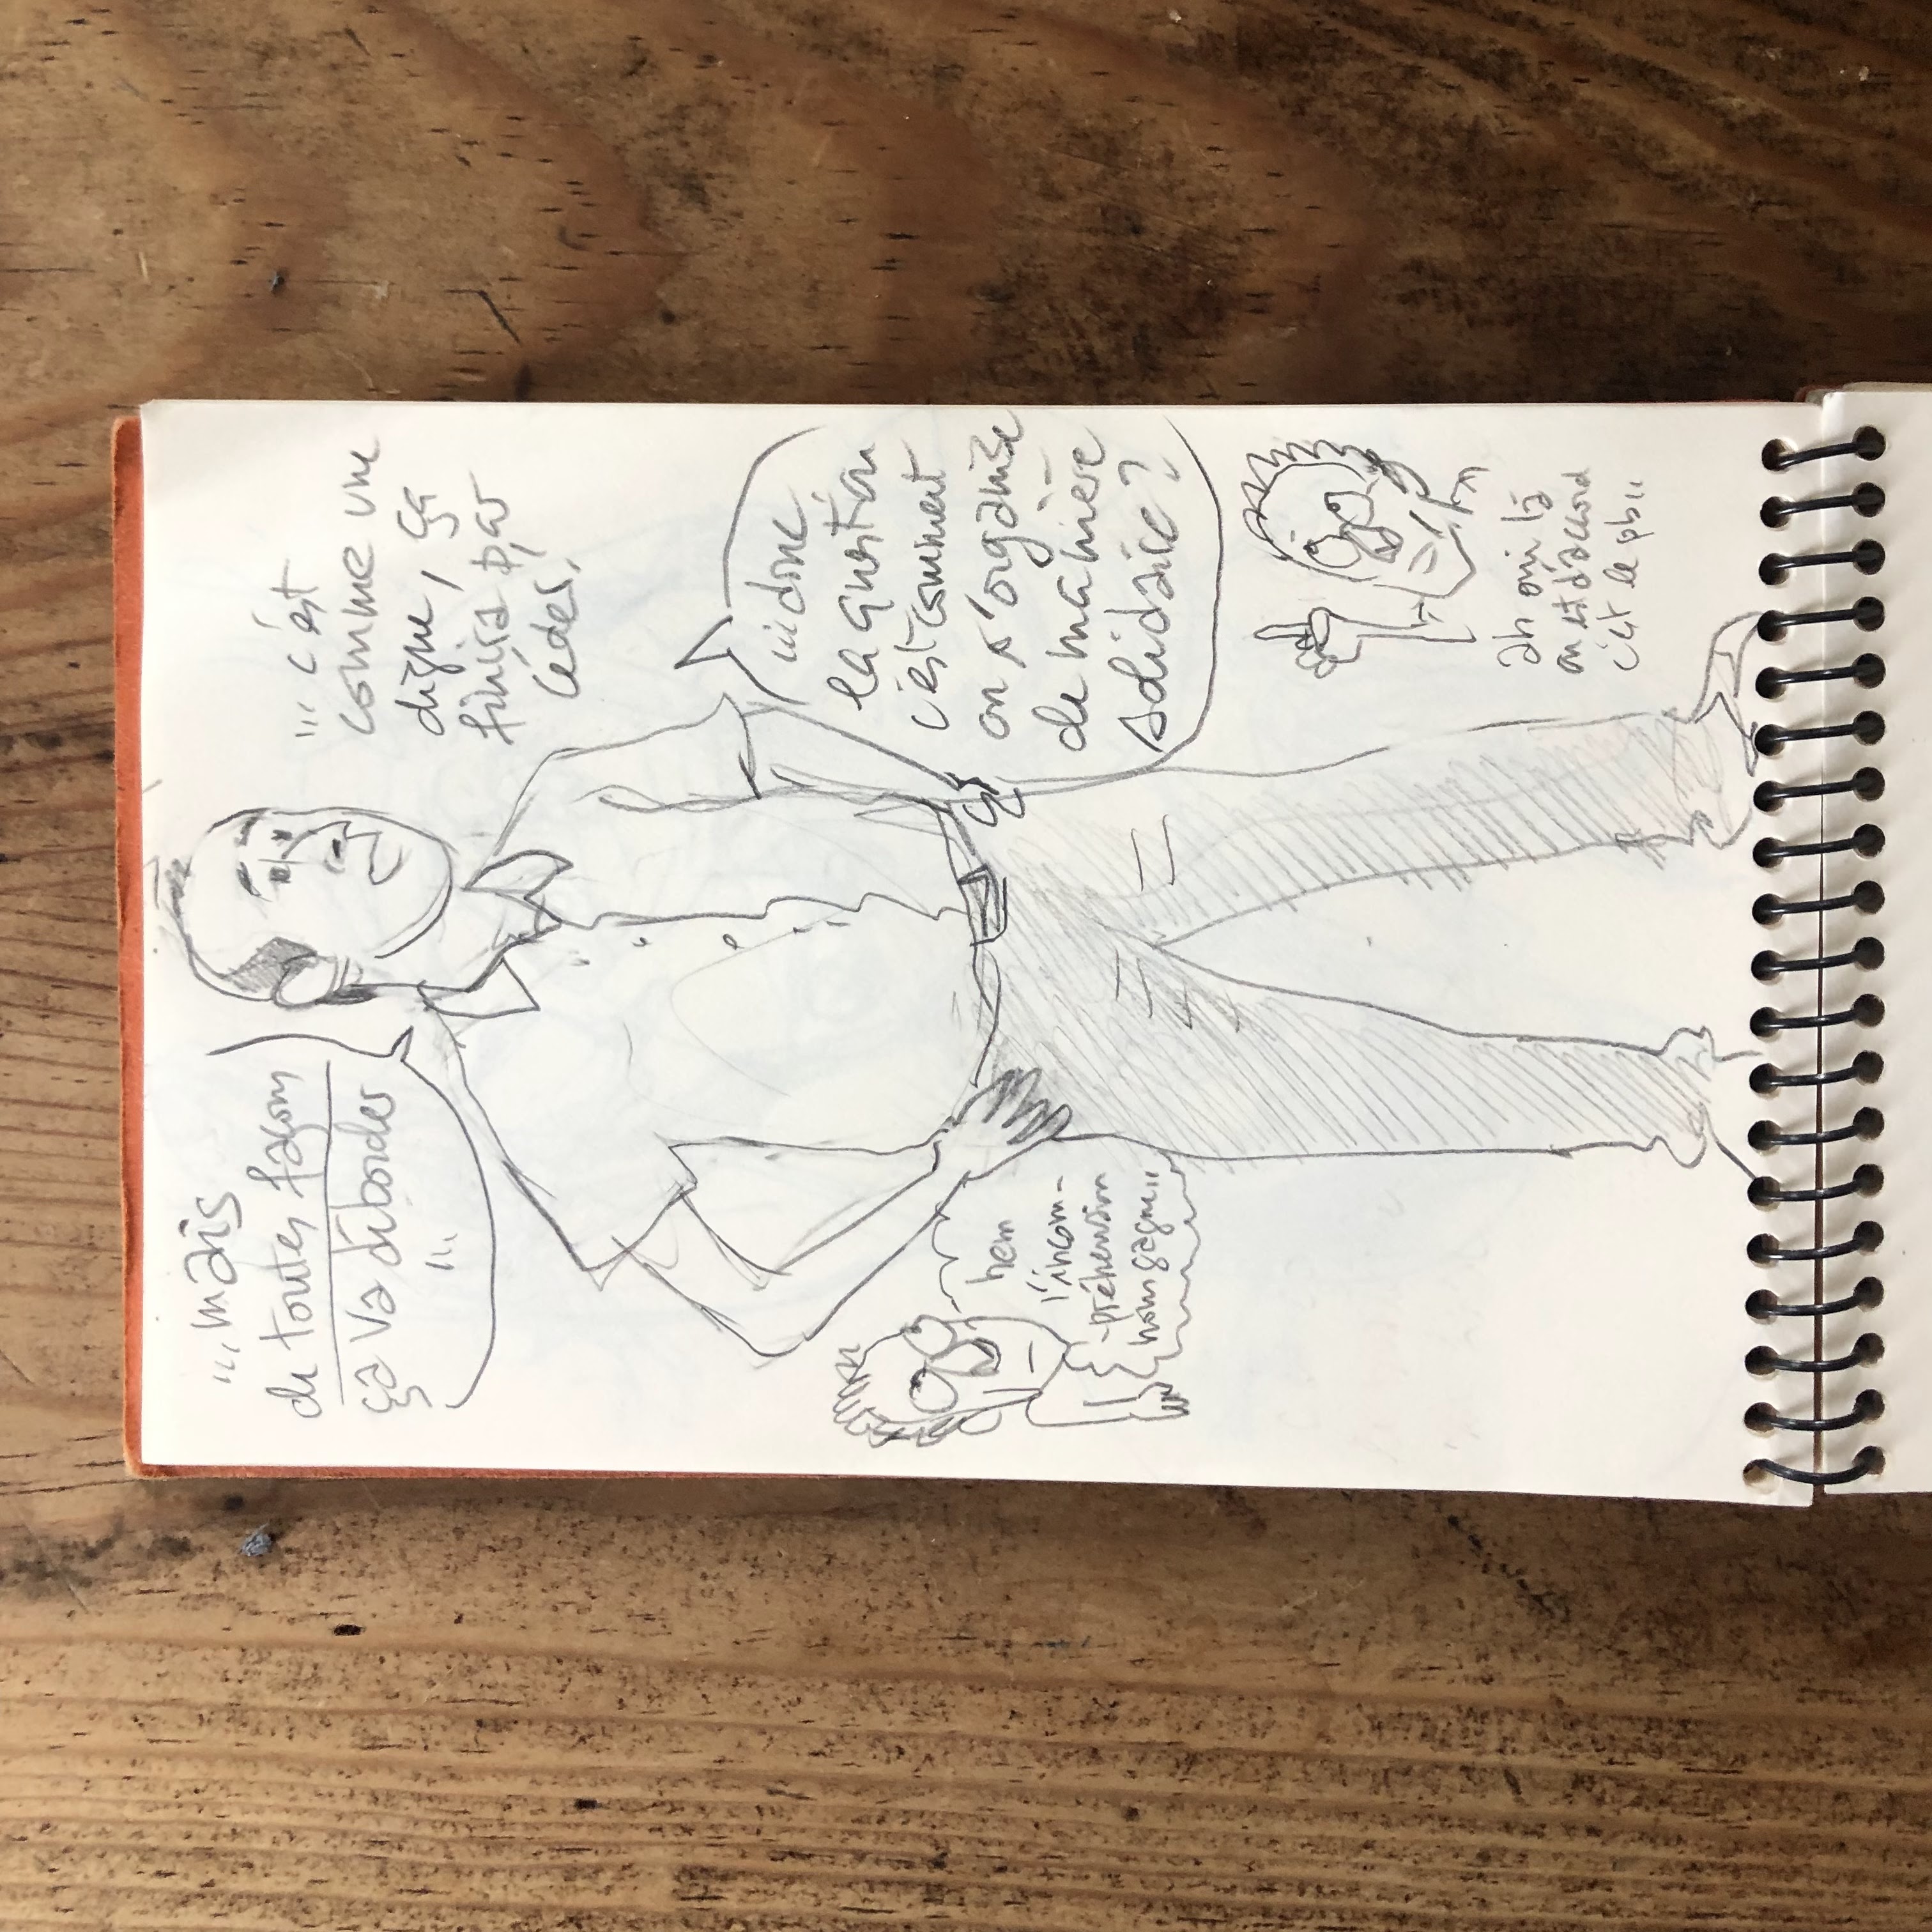 ...mais
de toutes façon
ça va déborder
...
... c'est
comme une
digue, ça
finira par
céder.
... donc
la question
c'est comment
on s'organise
de manière
solidaire?
hem
l'incom-
-préhension
nous gagne..
ah oui là
on est d'accord
c'est le pb..